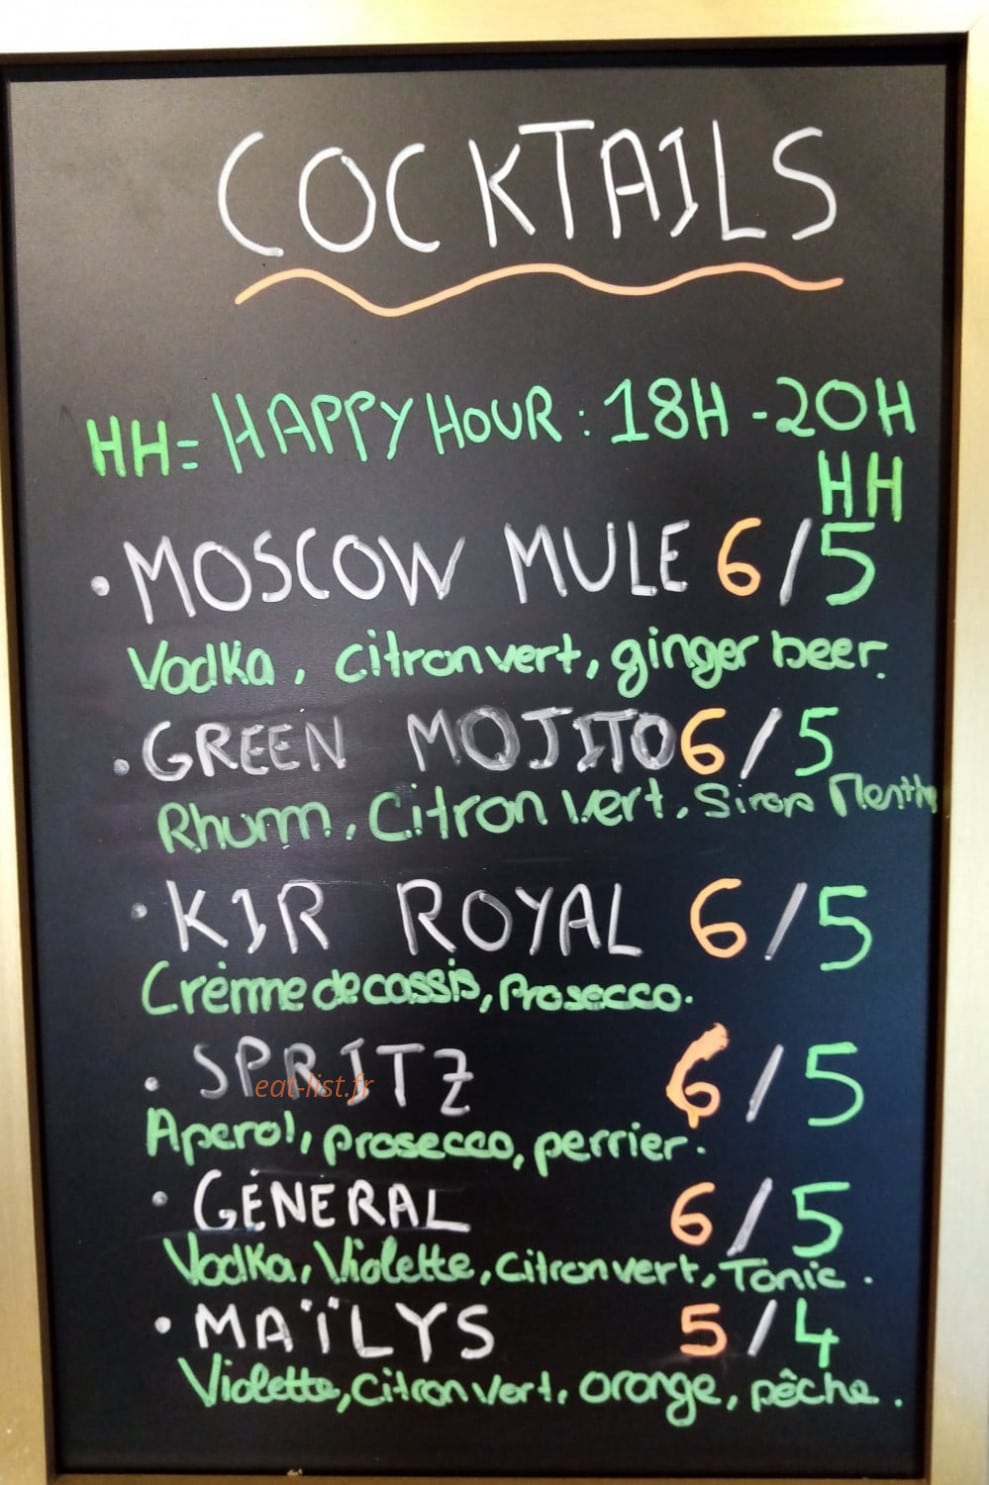 COCKTAILS
HH = HAPPY HOUR : 18H - 20H
HH
• MOSCOW MULE 6/5
Vodka, citron vert, ginger beer.
• GREEN MOJITO 6/5
Rhum, Citron vert, Sirop Menthe
• KIR ROYAL 6/5
Crème de cassis, Prosecco.
• SPRITZ 6/5
eat-list.fr
Aperol, prosecco, perrier.
• GÉNÉRAL 6/5
Vodka, Violette, citron vert, Tonic.
• MAÏLYS 5/4
Violette, citron vert, orange, pêche.